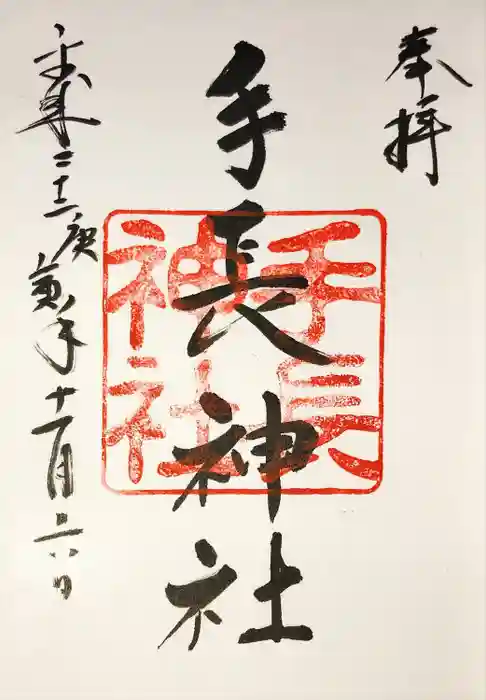 奉拝
手長神社
平成二十二庚寅年十一月
手長
神社